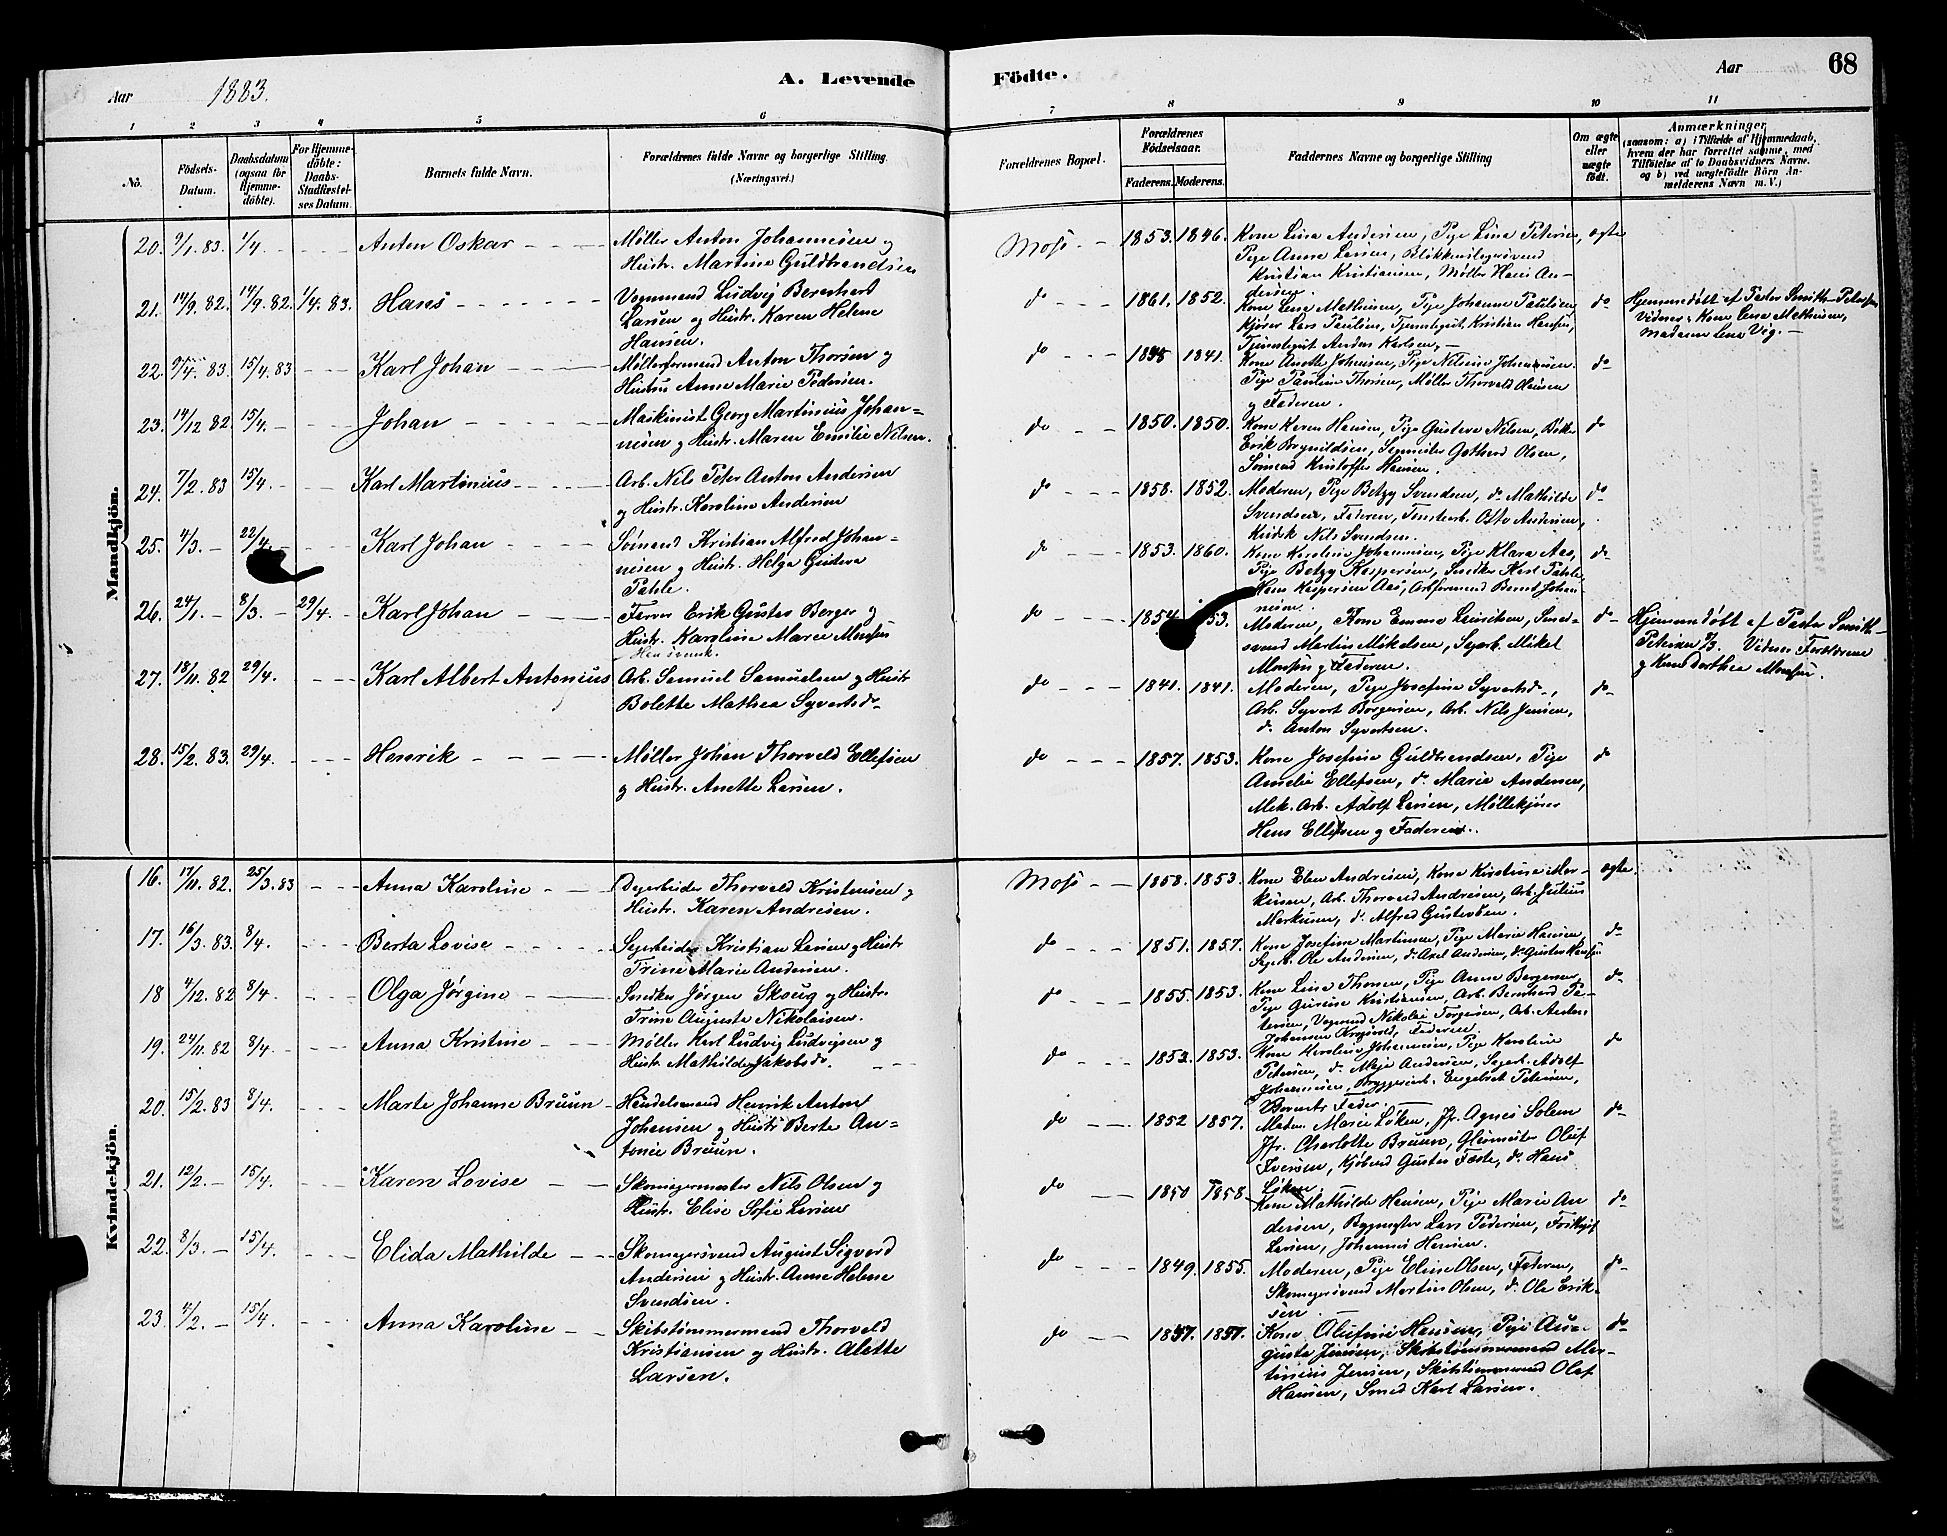 Aar 1883. A. Levende Fødte. Aar 68
1 2 3 4 5 6 7 8 9 10 11
No. Födsels-Datum. Daabsdatum (ogsaa for Hjemme-döbte). For Hjemme-döbte: Daabs-Stadfæstel-ses Datum. Barnets fulde Navn. Forældrenes fulde Navne og borgerlige Stilling (Næringsvei.) Forældrenes Bopæl. Forældrenes Födselsaar. Faderens. Moderens. Faddernes Navne og borgerlige Stilling Om ægte eller uægte födt. Anmærkninger (saasom: a) i Tilfælde af Hjemmedaab, hvem der har forrettet samme, med Tilföielse af to Daabsvidners Navne. og b) ved uægtefödte Börn An-melderens Navn m. V.)
Mandkjön.
20. 9/1. 83. 1/4. Anton Oskar Møller Anton Johannesen og
Hustr. Martine Guldbrandsen
Moss 1853. 1846. Kone Lina Andersen, Pige Lina Petersen, ægte
Pige Anna Larsen, Blikkenslagersvend
Kristian Kristiansen, Møller Hans An-
dersen.
21. 14/9. 82. 14/9. 82. 1/4. 83. Hans Vognmand Ludvig Berenhart
Larsen og Hustr. Karen Helene
Hansen.
do 1861. 1852. Kone Lena Mathisen, Pige Johanne Paulsen, do
Kjører Lars Paulsen, Tjenestegut Kristian Hansen,
Tjenestegut Anders Karlsen,
Hjemmedøbt af Pastor Smith-Petersen
Vidner: Kone Lena Mathisen,
Madame Lena Vig.
22. 9/4. 83. 15/4. 83 Karl Johan Møllerformand Anton Thorsen og
Hustru Anne Marie Pedersen.
do 1841. Kone Anette Johansen, Pige Nilsine Johannesen do
Pige Pauline Thorsen, Møller Thorvald Hansen
og Faderen.
23. 14/12 82. 15/4. Johan Maskinist Georg Martinius Johan=
nesen og Hustr. Maren Emilie Nilsen.
do 1850. 1850. Kone Karen Hansen, Pige Gustava Nilsen, do
Erik Brynildsen, Gothard Olsen,
Sømand Kristoffer Hansen.
24. 7/2. 83 15/4. Karl Martinius Arb. Nils Peter Anton Andersen
og Hustr. Karoline Andersen
do 1858. 1852. Moderen, Pige Betzy Svendsen, do Mathilde do
Svendsen, Faderen, Otto Andersen,
Nils Svendsen.
25. 4/3. 22/4. Karl Johan Sømand Kristian Alfred Johan=
nesen og Hustr. Helga Gustava
Pahle.
do 1853. 1860. Kone Karoline Johannesen, Pige Klara Aas, do
Pige Betzy Kaspersen, Snedker Karl Pahle
Hans Kaspersen Aas, Arbformand Bernt Johan-
nesen.
26. 24/1. 8/3. 29/4. Karl Johan Farver Erik Gustav Berger og
Hustr. Karoline Marie Monsen
do 1854. Moderen, Kone Emma Hinrichsen,
Martin Mikelsen, Sagarb. Mikel
Monsen og Faderen.
do
Hjemmedøbt af Pastor Smith-
Petersen 8/3. Vidner Forældrene
og Kone Dorthea Monsen.
27. 18/11. 82 29/4. Karl Albert Antonius Arb. Samuel Samuelsen og Hustr
Bolette Mathea Syvertsd.
do 1841. 1841. Moderen, Pige Josefine Syvertsd., do
Arb. Syvert Borgersen, Arb. Nils Jensen,
do Anton Syvertsen.
28. 15/2. 83. 29/4. Henrik Møller Johan Thorvald Ellefsen
og Hustr. Anette Larsen.
do 1857. 1853. Kone Josefine Guldbrandsen, Pige do
Amelie Ellefsen, do Marie Andersen,
Mek. Arb. Adolf Larsen, Møllekjører
Hans Ellefsen og Faderen.
Kvindekjön.
16. 17/11. 82. 25/3. 83 Anna Karoline Thorvald Kristensen og
Hustr. Karen Andresen.
Moss 1858. 1853. Kone Elen Andresen, Kone Kirstine Mar- ægte.
kussen, Arb. Thorvald Andresen, Arb. Julius
Markusen, do Alfred Gustavsen.
17. 16/3. 83. 8/4. Berta Lovise Sagarbeider Kristian Larsen og Hustr
Trine Marie Andersen.
do 1851. 1857. Kone Josefine Martinsen, Pige Marie Hansen, do
Sagarb. Ole Andersen, do Axel Andersen, do Gustav Hansen
18 4/12. 82 8/4. Olga Jørgine Snedker Jørgen Skoug og Hustr.
Trine Auguste Nikolaisen.
do 1855. 1853. Kone Lina Thoresen, Pige Anna Borgersen, do
Pige Gurine Kristiansen, Arb. Bernhard Pe-
tersen, Vognmand Nikolai Torgersen, Arb. Anders
Johansen Faderen.
19. 24/11. 82 8/4. Anna Kristine Møller Karl Ludvig Ludvigsen og
Hustr Mathilde Jakobsd.
do 1853. 1853. Kone Karoline Johannesen, Pige Karoline do
Petersen, do Maja Andersen, Sagarb. Adolf
Johannesen, Bryggeriarb. Engebret Petersen,
Barnets Fader.
20. 15/2. 83 8/4. Marte Johanne Bruun Handelsmand Henrik Anton
Johansen og Hustr Berte An=
tonie Bruun.
do 1852 1857. Madm. Marie Løken, Jfr. Agnes Solem do
Jfr. Charlotte Bruun, Oluf
Iversen, Kjøbmd Gustav Faste, do Hans
Løken.
21. 12/2. 15/4. Karen Lovise Skomagermester Nils Olsen og
Hustr. Elise Sofie Larsen
do 1850 1858. Kone Mathilde Hansen, Pige Marie An do
dersen, Bygmester Lars Pedersen,
Larsen, Johannes Hansen.
22. 8/3. 15/4. Elida Mathilde Skomagersvend August Sigvard
Andersen og Hustr. Anne Helene
Svendsen.
do 1849. 1855. Moderen, Pige Elise Olsen, Faderen, do
Skomagersvend Martin Olsen, do Ole Erik-
sen.
23. 4/2. 15/4. Anna Karoline Skibstømmermand Thorvald
Kristiansen og Hustr. Alette
Larsen.
do 1857. 1857. Kone Olufine Hansen, Pige Au= do
gusta Jensen, Skibstømmermand Mar-
tinius Jensen, Skibstømmermand Olaf
Hansen, Smed Karl Larsen.